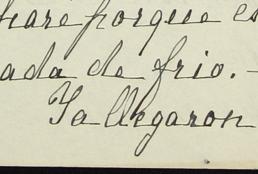 hare porque es
ada de frio.-
Ya llegaron